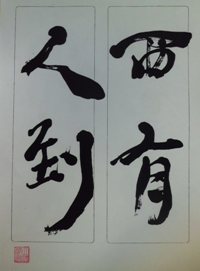 西有
人到